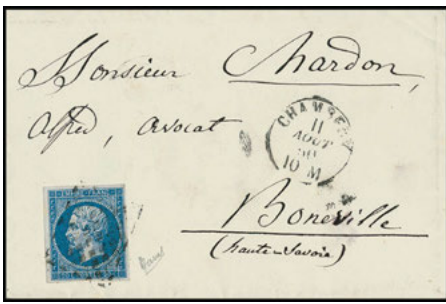 Monsieur Chardon,
Alfred, avocat
CHAMBERY
11
AOUT
60
10 M
EMPIRE FRANC.
Boneville
(haute-Savoie)